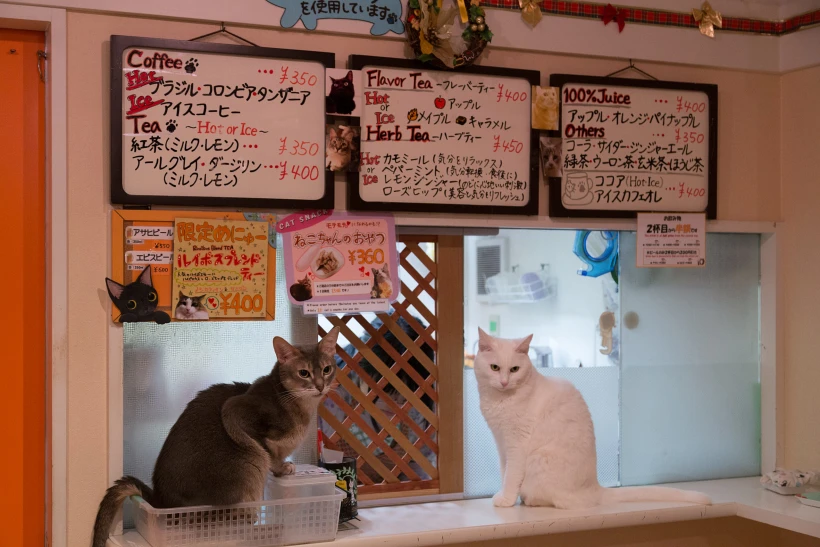 を使用しています
Coffee ・・・¥350
Hot ブラジル・コロンビア・タンザニア
Ice アイスコーヒー
Tea 〜Hot or Ice〜
紅茶(ミルク・レモン) ・・・¥350
アールグレイ・ダージリン ・・・¥400
(ミルク・レモン)
Flavor Tea 〜フレーバーティー ¥400
Hot or Ice アップル
メイプル キャラメル
Herb Tea 〜ハーブティー ¥450
Hot or Ice カモミール(気分をリラックス)
ペパーミント(気分転換・食後に)
レモンジンジャー
ローズヒップ
100%Juice ・・・¥400
アップル・オレンジ・パイナップル
Others ・・・¥350
コーラ・サイダー・ジンジャーエール
緑茶・ウーロン茶・玄米茶・ほうじ茶
ココア(Hot・Ice) ・・・¥400
アイスカフェオレ
アサヒビール
エビスビール
限定めにゅー
ルイボスブレンドティー
¥400
CAT SNACK
ねこちゃんのおやつ
¥360
2杯目から半額